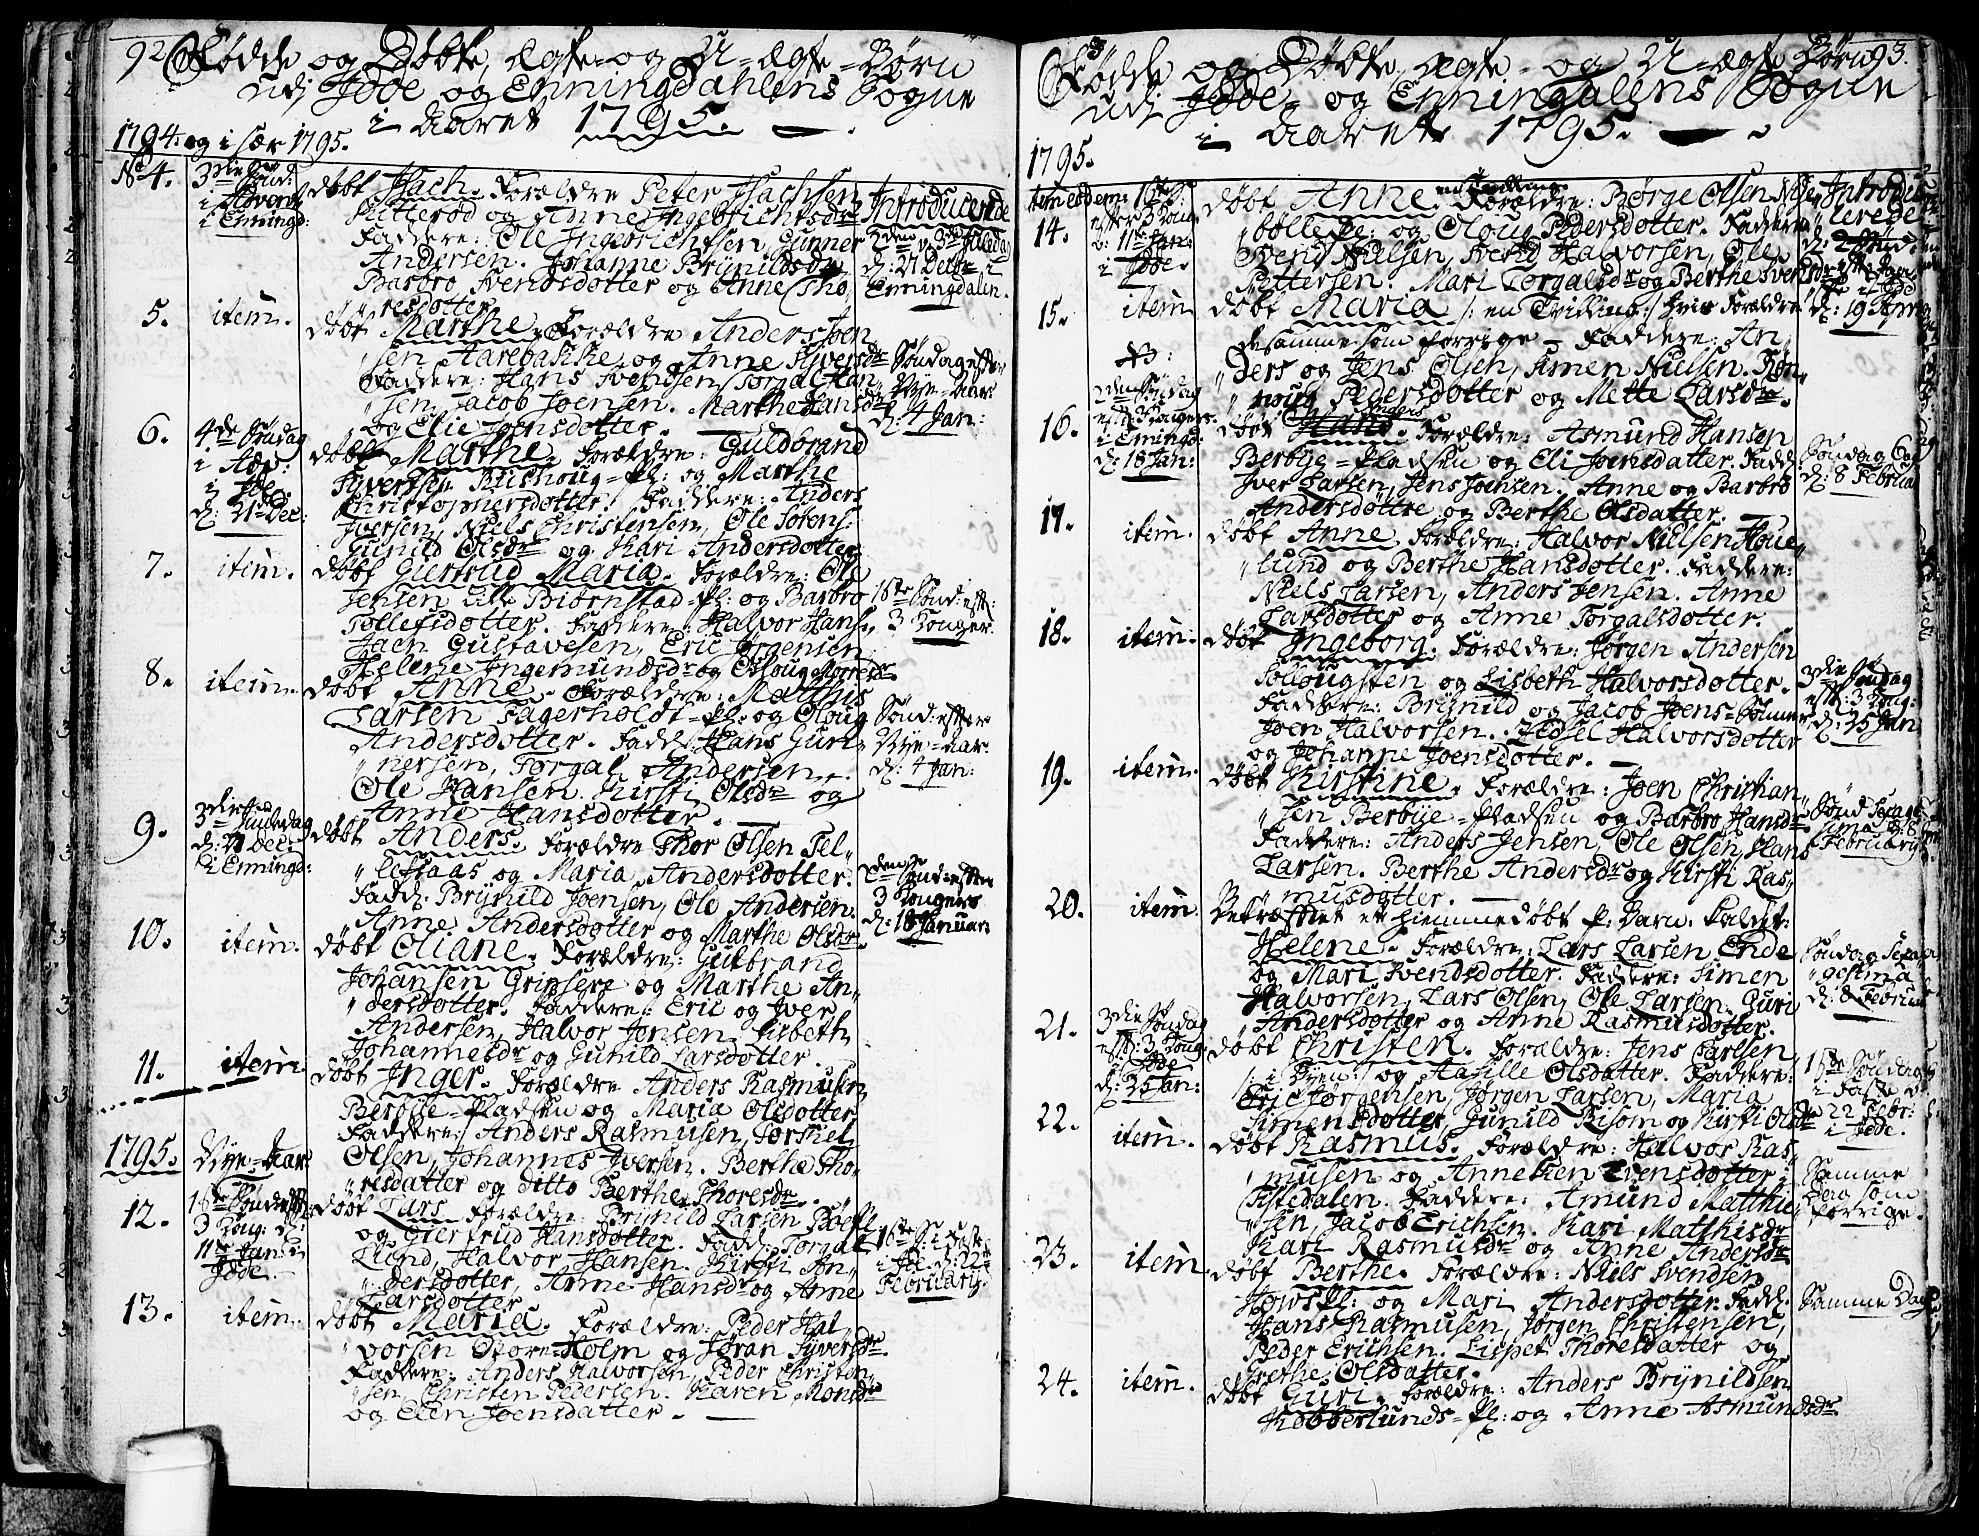 92
Fødde og Døbte, ægte- og U-ægte-Børn
udj Idde og Enningdahlens Sogne
i Aaret 1795.
1794. og i sær 1795.
No 4.
3die Sønd:
i Advent
i Enningd:
døbt Zach. Forældre Peter Zachsen
og Anne Ingebrichtsdr
Faddere: Ole Ingebrichtsen, Gunner
Andersen. Johanne Brynildsdr
Barbro Svendsdotter og Anne Tho„
„resdotter.
Introducerede
2den p. 3die Juledag
d: 27 Decbr i
Enningdalen.
5.
item.
døbt Marthe. Forældre Anders Joen„
„sen Aarebakke og Anne Syversdr
Faddere: Hans Svendsen, Torgal Han„
„sen, Jacob Joensen. Marthe Hansdr
og Elie Joensdotter.
Søndag efter
Nye-Aar
d: 4 Jan:
6.
4de Søndag
i Adv:
i Idde.
d: 21de Dec:
døbt Marthe. Forældre: Guldbrand
Syvertsen Bushoug-Pl: og Marthe
Christophersdotter. Faddere: Anders
Iversen, Niels Christensen, Ole Sørens:
Gunild Olsdr og Kari Andersdotter
7.
item.
døbt Giertrud Maria. Forældre: Ole
Jensen Lille Biørnstad-Pl: og Barbro
Tollefsdotter. Faddere: Halvor Hans:
Zach Gustavesen, Eric Jørgensen
Helene Ingemundsdr og Olloug Morresdr
1ste Sønd: eft:
3 Konger.
8.
item.
døbt Anne. Forældre: Matthis
Larsen Fagerholdt-Pl: og Oloug
Andersdotter. Fadd: Hans Gun„
„nersen, Torgal Andersen,
Ole Hansen. Kirsti Olsdr og
Anne Hansdotter.
Sønd: efter
Nye-aar.
d: 4 Jan:
9.
3die Juledag
d: 27 Dec:
i Enningd:
døbt Anders. Forældre Thor Olsen Tel„
„lefsaas og Maria Andersdotter.
Fadd: Brynild Joensen, Ole Andersen.
Anne Andersdotter og Marthe Olsdr
2den Sønd: efter
3 Kongers
d: 18 Januar:
10.
item.
døbt Oliane. Forældre: Gulbrand
Johansen Grinsere og Marthe An„
„dersdotter. Faddere: Eric og Iver
Andersen, Halvor Jonsen. Lisbeth
Johannesdr og Gunild Larsdotter.
11.
item.
døbt Inger. Forældre Anders Rasmusen
Berbye-Pladsen og Maria Olsdotter
Faddere: Anders Rasmusen, Torkiel
Olsen, Johannes Iversen. Berthe Tho„
„resdatter og ditto Berthe Thoresdr.
1795.
Nye-Aar
12.
1ste Sønd: eft
3 Kong: d:
11te Jan: i
Idde.
døbt Lars. Forældre: Brynild Larsen
og Giertrud Hansdotter. Fadd: Torgal
Lund, Halvor Hansen. Kirsti An„
„dersdotter, Anne Hansdr og Anne
Larsdotter
1ste S: i Faste
i Idde d: 22
February.
13.
item.
døbt Maria. Forældre: Peder Hal„
„vorsen Store-Holm og Søran Syversdr
Faddere: Anders Halvorsen, Peder Christen„
„sen, Christen Pedersen. Karen Monsdr
og Elen Joensdatter.
93.
Fødde og Døbte ægte- og U-ægte Børn
udj Idde- og Enningdalens Sogne
i Aaret 1795.
1795.
14.
1ste S:
efter 3 Kong:
d: 11te Jan:
i Idde.
døbt Anne en Tvilling. Forældre: Børge Olsen
og Oloug Pedersdotter. Faddere
Svend Nielsen, Svend Halvorsen, Ole
Pettersen. Mari Torgalsdr og Berthe Svensdr
Introdu„
cerede
15.
item
døbt Maria /: en Tvilling:/ hvis Forældre
desamme som forrige. Faddere: An„
„ders og Jens Olsen, Simen Nielsen. Røn„
„noug Pedersdotter og Mette Larsdr.
d: 19 April
16.
2den Søndag
eft: 3 Kongers.
i Enningd:
d: 18 Jan:
døbt Anders. Forældre: Asmund Hansen
Berbye-Pladsen og Eli Joensdatter. Fadd:
Iver Larsen, Jens Joensen. Anne og Barbro
Andersdøttre og Berthe Olsdatter.
d: 8 Februar
17.
item.
døbt Anne. Forældre: Halvor Nielsen Houe„
„lund og Berthe Hansdotter. Faddere:
Niels Larsen, Anders Jensen. Anne
Larsdotter og Anne Torgalsdotter.
18.
item:
døbt Ingeborg. Forældre: Jørgen Andersen
Sollougsten og Lisbeth Halvorsdotter.
Faddere: Brynild og Jacob Joens-Sønner
Joen Halvorsen. Zidsel Halvorsdotter
og Johanne Joensdotter.
3die Søndag
eft: 3 Kong:
d: 25 Jan
19.
item.
døbt Kirstine. Forældre: Joen Christian„
„sen Berbye-Pladsen og Barbro Hansdr
Faddere: Anders Jensen, Ole Olsen, Hans
Larsen. Berthe Andersdr og Kirsti Ras„
„musdotter.
Sønd: Sexage„
sima d: 8
February
20.
item.
Bekræftet et hiemmedøbt P: Barn. kaldet:
Helene. Forældre: Lars Larsen Ende
og Mari Svendsdotter. Faddere: Simen
Halvorsen, Lars Olsen, Ole Larsen. Guri
Andersdotter og Anne Rasmusdotter.
Søndag Sexa„
„gesima
d: 8 Februar
21.
3die Søndag
eft: 3 Kong:
Idde
d: 25 Jan:
døbt Christen. Forældre: Jens Carlsen
/: i Byen:/ og Aasille Olsdatter. Faddere:
Eric Jørgensen, Jørgen Larsen, Maria
Simensdotter, Gunild Risom og Kirsti Olsdr
1ste Søndag
i Faste
d: 22 Febr:
i Idde.
22.
item.
døbt Rasmus. Forældre: Halvor Ras„
musen og Anneken Evensdotter
Tistedalen. Faddere: Amund Matthie„
„sen, Jacob Erichsen. Kari Matthisdr
Kari Rasmusdr og Anne Andersdr
Samme
Dag som
forrige.
23.
item.
døbt Berthe. Forældre: Niels Svendsen
Hows Pl: og Mari Andersdotter. Fadd:
Hans Rasmusen, Jørgen Christensen,
Peder Erichsen. Lispet Thoresdatter og
Grethe Olsdatter.
Samme Dag
24.
item.
døbt Guri. Forældre: Anders Brynildsen
Kobberlunds-Pl: og Anne Asmundsdr